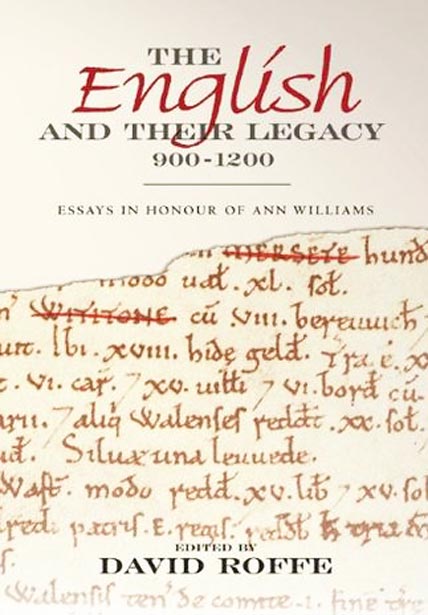 THE
English
AND THEIR LEGACY
900-1200
ESSAYS IN HONOUR OF ANN WILLIAMS
MERSETE hund
modo ual̃. xl. sol̃.
WITITONE cũ .VIII. bereuuich⁊
ibi .xviii. hidę geld̃. Tra ẽ .x
. vi. car̃. ⁊ xv. uilli ⁊ vi. bord̃ cũ
⁊ aliq̃ Walenses redd̃t .xx. sol̃.
Siluæ una leuuede.
Wast̃. modo redd̃ .xv. lib̃ ⁊ xv. sol
patris. E. regis. redd̃
EDITED BY
DAVID ROFFE
Walensis ten̄ de comite . i. fine trẽ